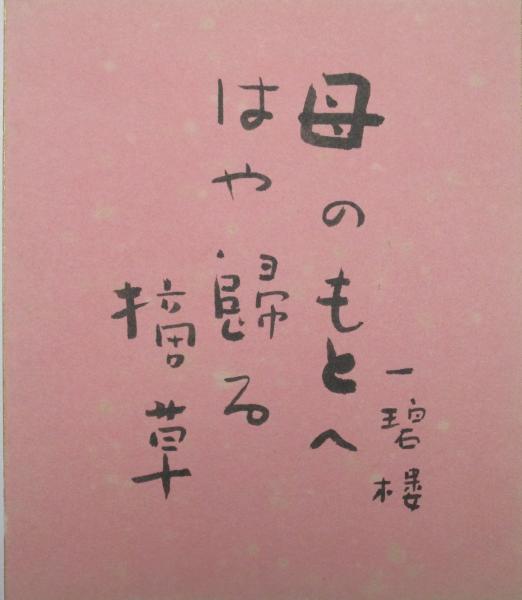 母のもとへ
はや歸る
摘草
一碧楼